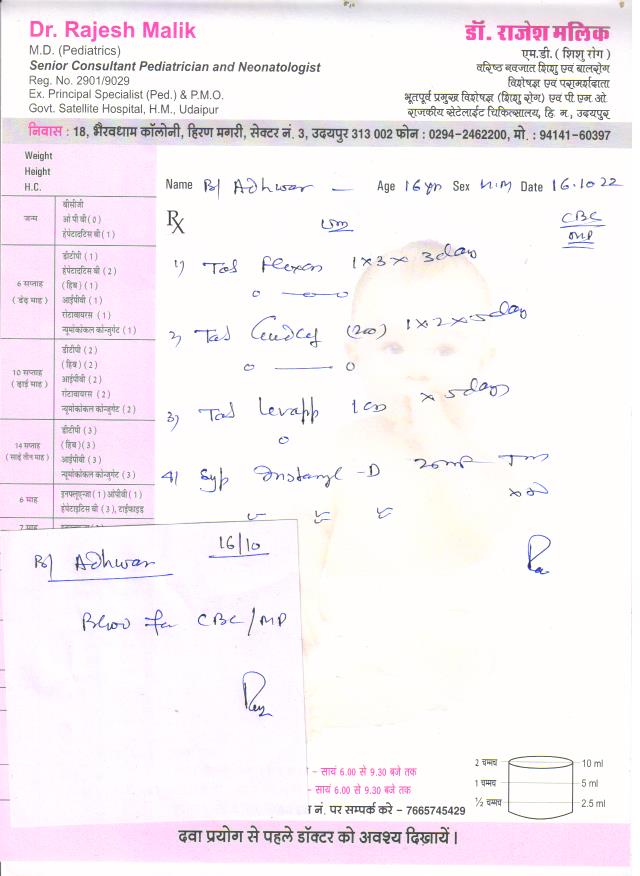 Dr. Rajesh Malik
M.D. (Pediatrics)
Senior Consultant Pediatrician and Neonatologist
Reg. No. 2901/9029
Ex. Principal Specialist (Ped.) & P.M.O.
Govt. Satellite Hospital, H.M., Udaipur
डॉ. राजेश मलिक
एम.डी. ( शिशु रोग )
वरिष्ठ नवजात शिशु एवं बालरोग
विशेषज्ञ एवं परामर्शदाता
भूतपूर्व प्रमुख विशेषज्ञ (शिशु रोग) एवं पी.एम.ओ.
राजकीय सेटेलाईट चिकित्सालय, हि. म., उदयपुर
निवास : 18, भैरवधाम कॉलोनी, हिरण मगरी, सेक्टर नं. 3, उदयपुर 313 002 फोन : 0294-2462200, मो. : 94141-60397
Weight
Height
H.C.
Name B/ Adhwar Age 16 yr Sex Date 16.10.22
CBC
MP
Rx
जन्म
बीसीजी
ओ.पी.वी ( 0 )
हेपेटाइटिस बी ( 1 )
6 सप्ताह
( डेढ़ माह )
डीटीपी ( 1 )
हेपेटाइटिस बी ( 2 )
( हिब ) ( 1 )
आईपीवी ( 1 )
रोटावायरस ( 1 )
न्यूमोकोकल कोन्जुगेट ( 1 )
10 सप्ताह
( ढ़ाई माह )
डीटीपी ( 2 )
( हिब ) ( 2 )
आईपीवी ( 2 )
रोटावायरस ( 2 )
न्यूमोकोकल कोन्जुगेट ( 2 )
14 सप्ताह
( साढ़े तीन माह )
डीटीपी ( 3 )
( हिब ) ( 3 )
आईपीवी ( 3 )
न्यूमोकोकल कोन्जुगेट ( 3 )
6 माह
इनफ्लूएन्जा ( 1 ) ओपीवी ( 1 )
हेपेटाइटिस बी ( 3 ), टाईफाइड
7 माह
1) Tab 1x3x 3day
2) Tab (200) 1x2x5day
3) Tab x 5day
4) Syp -D
16/10
B/ Adhwar
Blood for CBC/MP
- सायं 6.00 से 9.30 बजे तक
- सायं 6.00 से 9.30 बजे तक
नं. पर सम्पर्क करे - 7665745429
2 चम्मच 10 ml
1 चम्मच 5 ml
½ चम्मच 2.5 ml
दवा प्रयोग से पहले डॉक्टर को अवश्य दिखायें ।